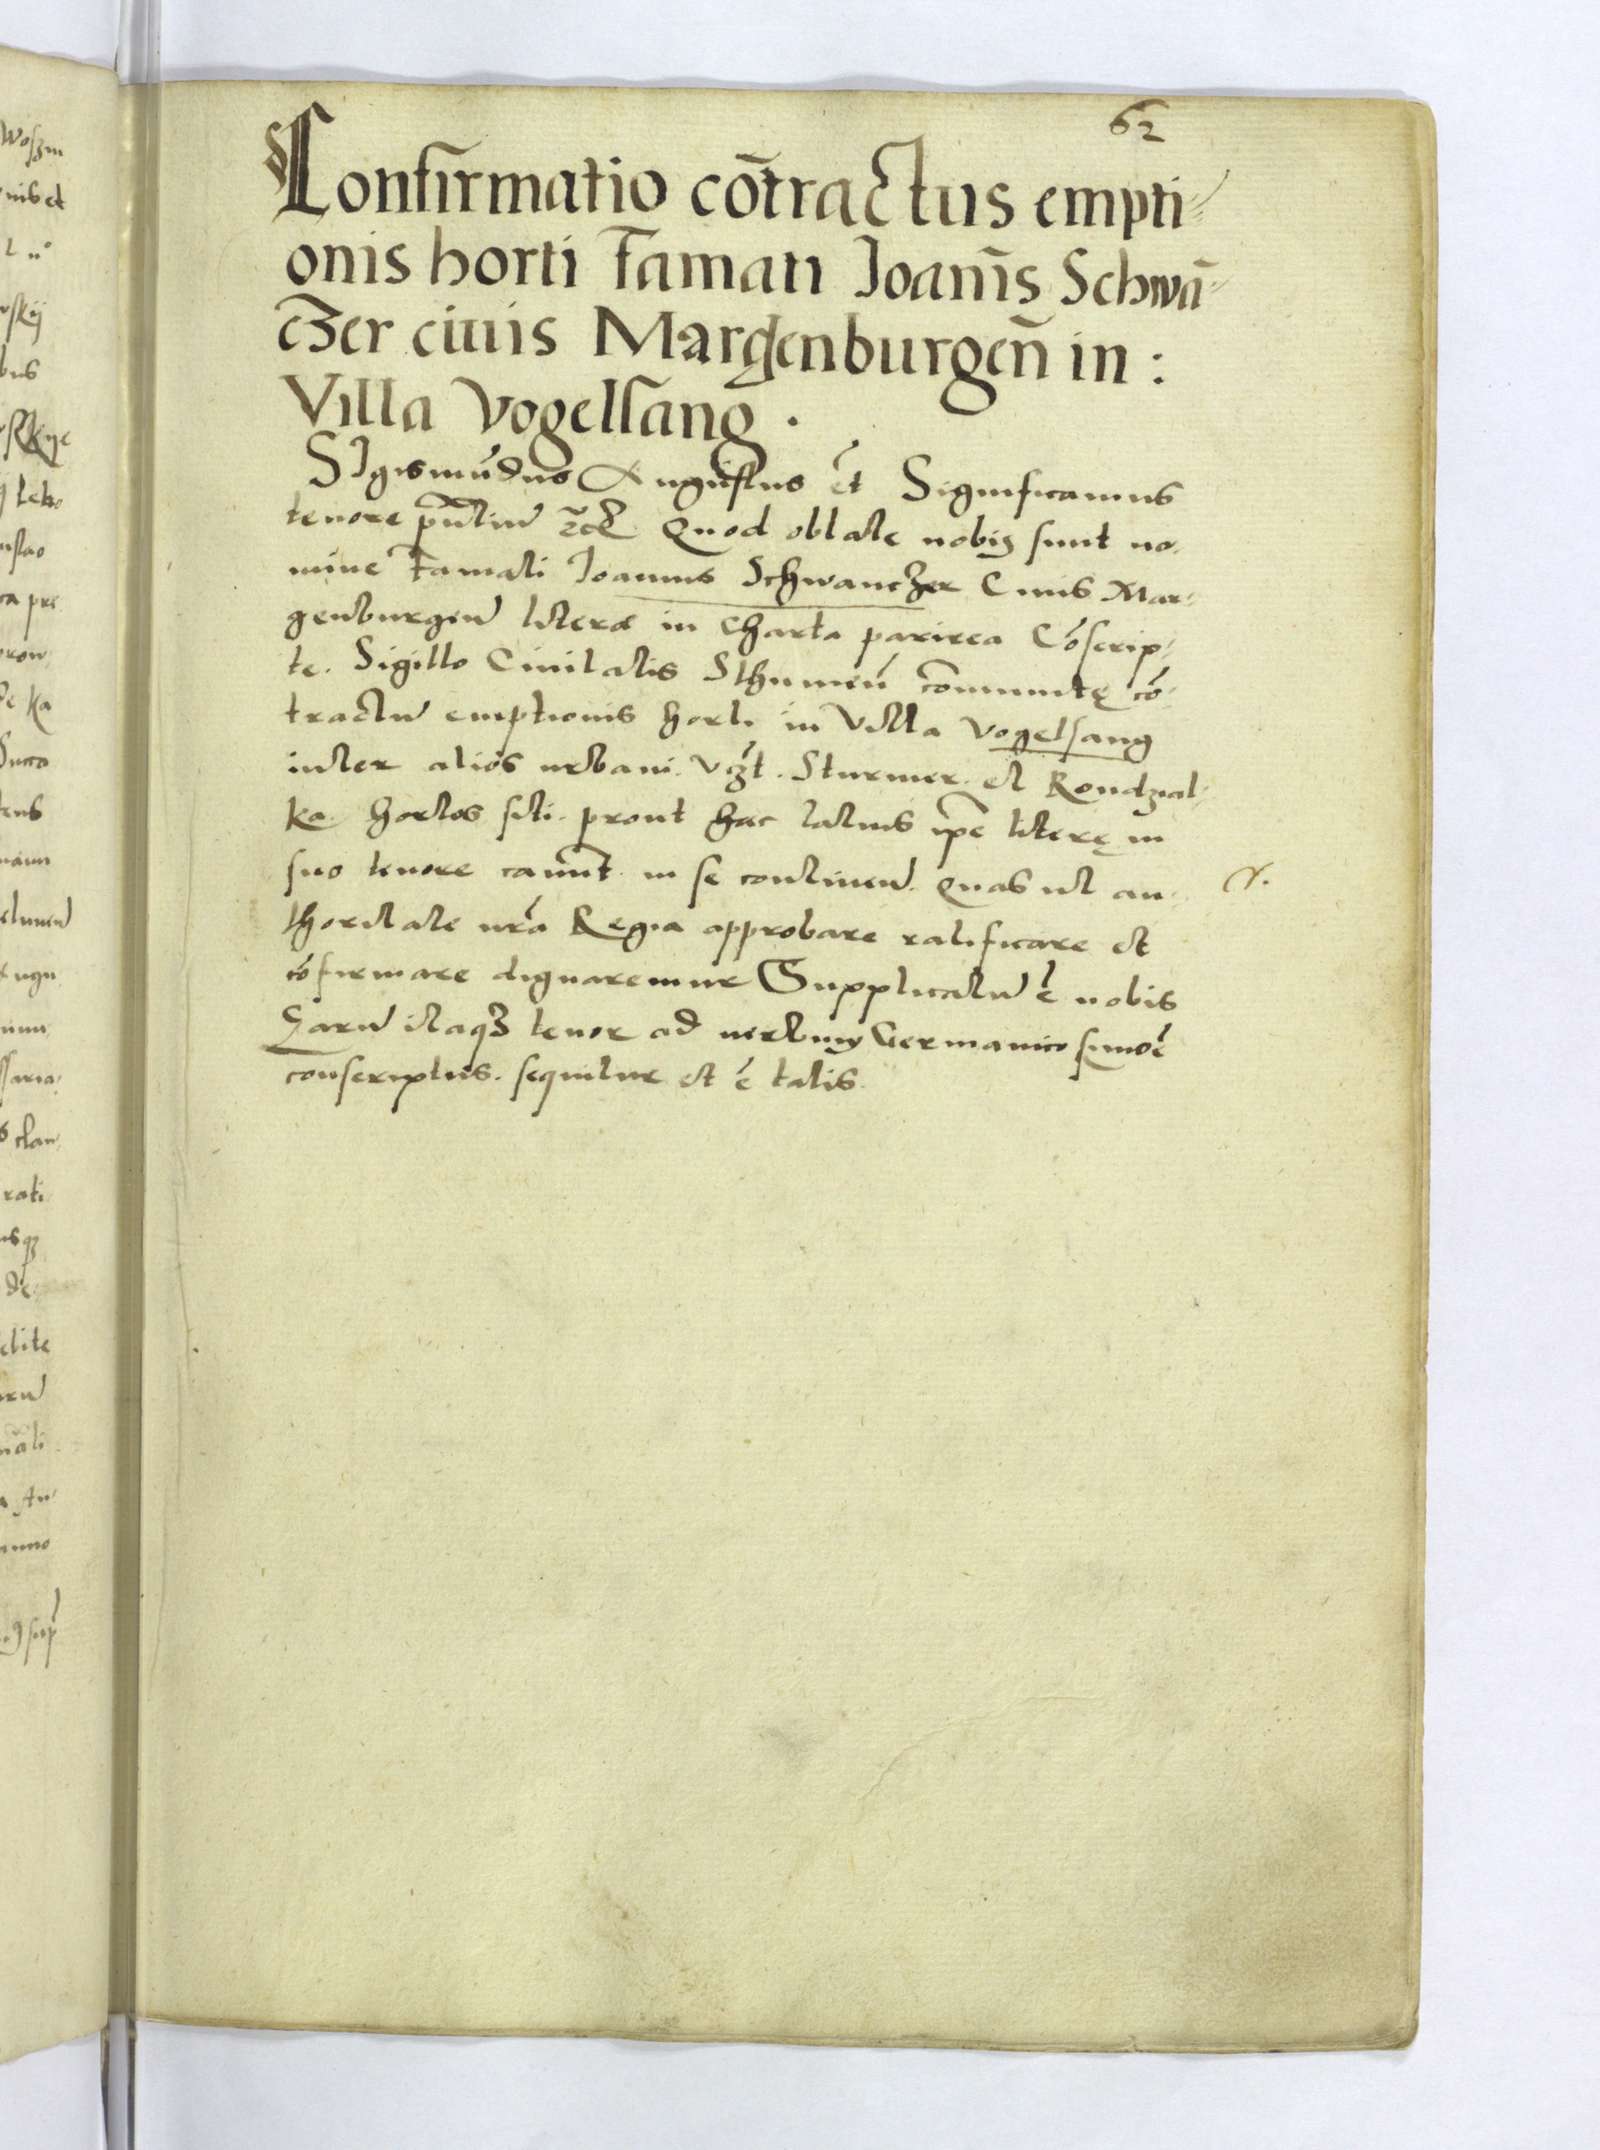 62
Confirmatio cōtractus empti-
onis horti Famati Joanīs Schwā-
czer ciuis Margenburgeñ in:
Villa Vogelsang.
SIgismūdus Augustus etc̃ Significamus
tenore pñtium etc̃ Quod oblate nobis sunt no-
mine Famati Joannis Schwanczer Ciuis Mar-
genburgeñ literæ in Charta papirea Cōscrip-
te. Sigillo Ciuitatis Sthumeñ cōmunitę cō-
tractum emptionis horti in Villa Vogelsang
inter alios urbani. Vczt. Sturmer. et Rondzial-
ka. hortos siti. prout hæc latius ipē literę in
suo tenore canunt in se continend. Quas ut au-
thoritate nrā Regia approbare ratificare et
cōfirmare dignaremur Supplicatum ē nobis
Earum itaq3 tenor ad uerbum Germanico sermōe
conscriptus. sequitur et ē talis.